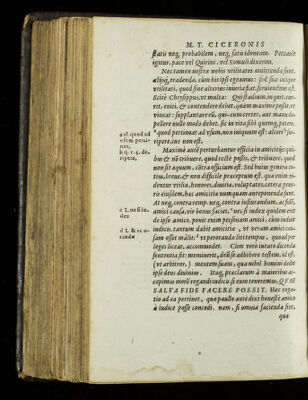 M. T. CICERONIS
ſtatis neq, probabilem, neq, ſatis idoneam. Peccauit
igitur, pace vel Quirini, vel Romuli dixerim.
Nec tamen noſtræ nobis vtilitates omittendæ ſunt,
alijsq́, tradendæ, cùm his ipſi egeamus: ſed ſuæ cuique
vtilitati, quod ſine alterius iniuria fiat, ſeruiendum eſt.
Scitè Chryſippus, vt multa: Qui ſtadium, inquit, cur-
rit, eniti, & contendere debet, quàm maximè poſsit, vt
vincat: ſupplantare eũ, quicum certet, aut manu de-
pellere nullo modo debet. ſic in vita ſibi quemq́, petere,
quod pertineat ad vſum, non iniquum eſt: alteri
ripere, ius non eſt.
Maximè autẽ perturbantur officia in amicitijs: qui-
bus & nõ tribuere, quod rectè poſsis, & tribuere, quod
non ſit æquum, cõtra officium eſt. Sed huius generis to-
tius, breue, & non difficile præceptum eſt. quæ enim vi-
dentur vtilia, honores, diuitiæ, voluptates, cetera gene-
ris eiuſdem, hæc amicitiæ numquam anteponenda ſunt.
At neq, contra remp. neq, contra iusiurandum, ac fidẽ,
amici cauſa, vir bonus faciet. nec ſi iudex quidem erit
de ipſo amico. ponit enim perſonam amici, cùm induit
iudicis. tantum dabit amicitiæ, vt veram amici cau-
ſam eſſe malit: vt perorandæ liti tempus, quoad per
leges liceat, accommodet. Cùm verò iurato dicenda
ſententia ſit: meminerit, deũ ſe adhibere teſtem. id eſt,
(vt arbitror,) mentem ſuam, qua nihil homini dedit
ipſe deus diuinius. Itaq, præclarum à maioribus ac-
cepimus morẽ rogandi iudicis ſi eum teneremus, QVAE
SALVA FIDE FACERE POSSIT. Hæc roga-
tio ad ea pertinet, quæ paullo antè dixi honeſtè amico
à iudice poſſe concedi. nam, ſi omnia facienda ſint,
quæ